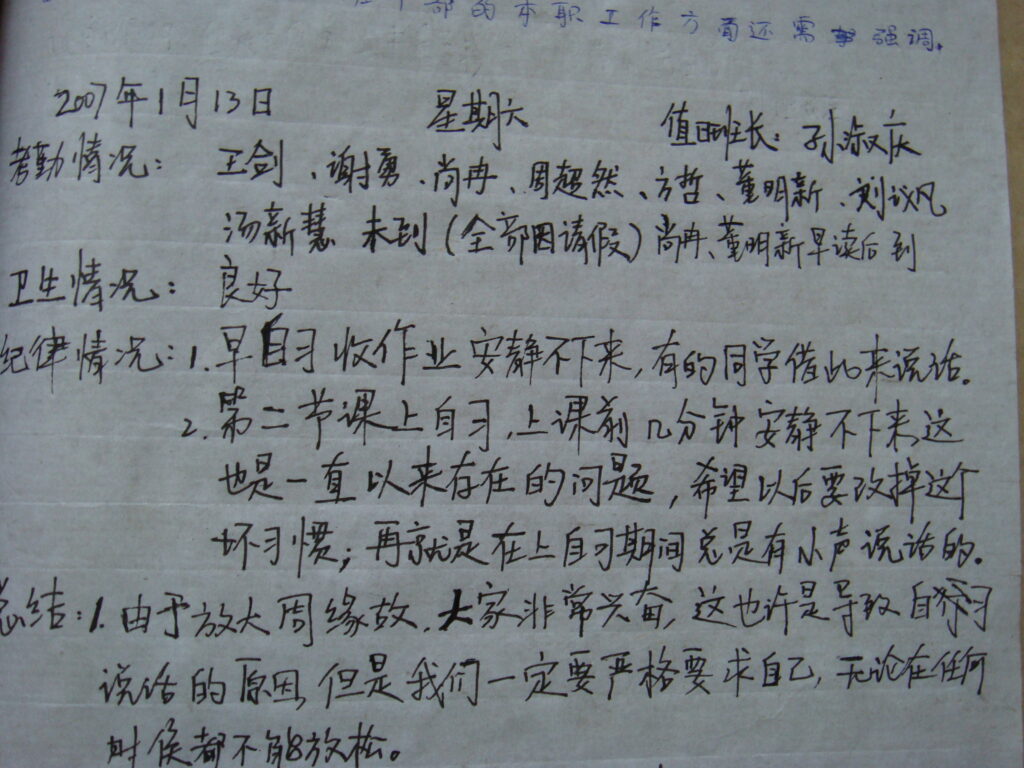 部的本职工作方面还需要强调。
2007年1月13日 星期六 值日班长：孙淑庆
考勤情况： 王剑、谢勇、尚冉、周超然、方哲、董明新、刘议风
汤新慧 未到（全部因请假）尚冉、董明新早读后到
卫生情况： 良好
纪律情况：1. 早自习收作业安静不下来，有的同学借此来说话。
2. 第二节课上自习，上课前几分钟安静不下来，这
也是一直以来存在的问题，希望以后要改掉这个
坏习惯；再就是在上自习期间总是有小声说话的。
总结：1. 由于放大周缘故，大家非常兴奋，这也许是导致自习
说话的原因，但是我们一定要严格要求自己，无论在任何
时候都不能放松。